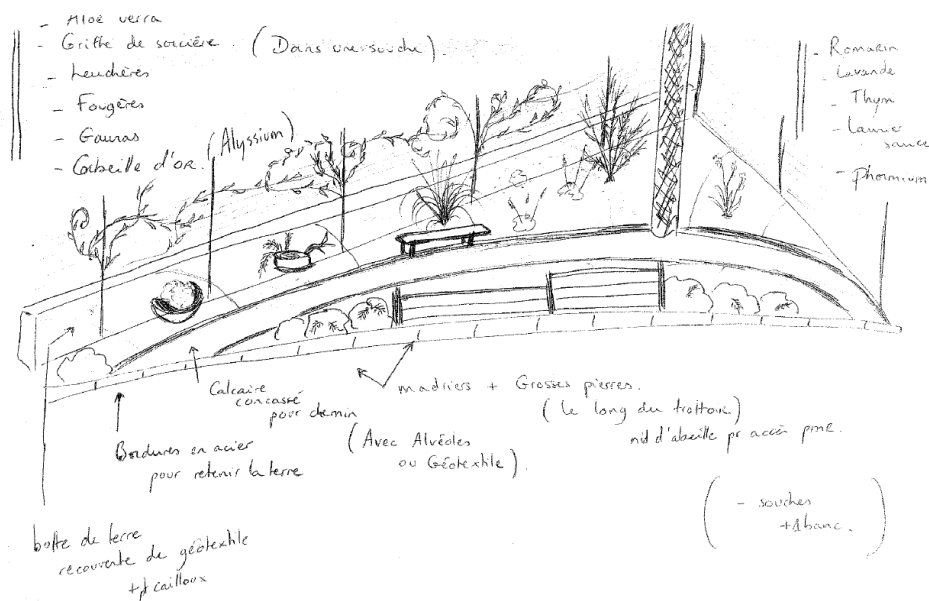 - Aloe verra
- Griffe de sorcière (Dans une souche)
- heuchères
- Fougères
- Gauras
- Corbeille d'or. (Alyssium)
- Romarin
- Lavande
- Thym
- Laurier
sauce
- phormium
Calcaire
concassé
pour chemin
madriers + Grosses pierres.
(le long du trottoir)
nid d'abeille pr accès pmr.
(Avec Alvéoles
ou Géotextile).
Bordures en acier
pour retenir la terre
butte de terre
recouverte de géotextile
+ pt cailloux
(- souches
+ 1 banc.)